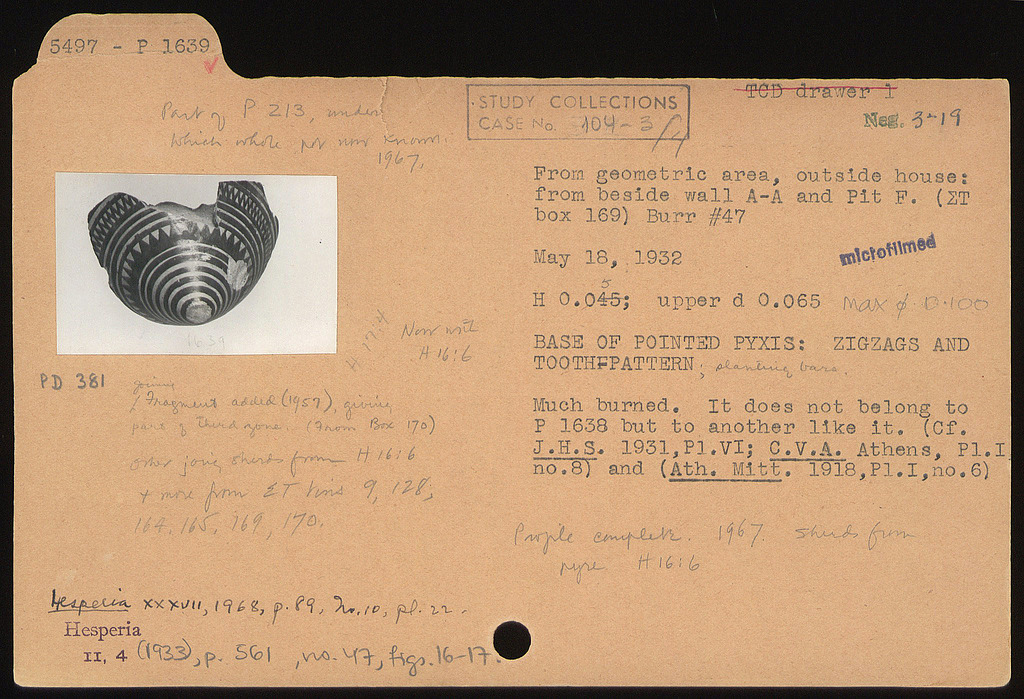 5497 - P 1639
Part of P 213, under
which whole pot now known.
1967.
STUDY COLLECTIONS
CASE No. 104-3
TCD drawer 1
Neg. 3-19
From geometric area, outside house:
from beside wall A-A and Pit F. (ΣT
box 169) Burr #47
May 18, 1932
microfilmed
5
H 0.045; upper d 0.065 Max ø 0.100
BASE OF POINTED PYXIS: ZIGZAGS AND
TOOTH-PATTERN; slanting bars.
Much burned. It does not belong to
P 1638 but to another like it. (Cf.
J.H.S. 1931,Pl.VI; C.V.A. Athens, Pl.I
no.8) and (Ath. Mitt. 1918,Pl.I,no.6)
Profile complete. 1967. Sherds from
pyre H 16:6
1639
H 17:4
Now with
H 16:6
PD 381
joining
1 Fragment added (1957), giving
part of third zone. (From Box 170)
other joining sherds from H 16:6
+ more from ΣT tins 9, 128,
164, 165, 169, 170.
Hesperia XXXVII, 1968, p. 89, No. 10, pl. 22.
Hesperia
II, 4 (1933), p. 561, no. 47, figs. 16-17.